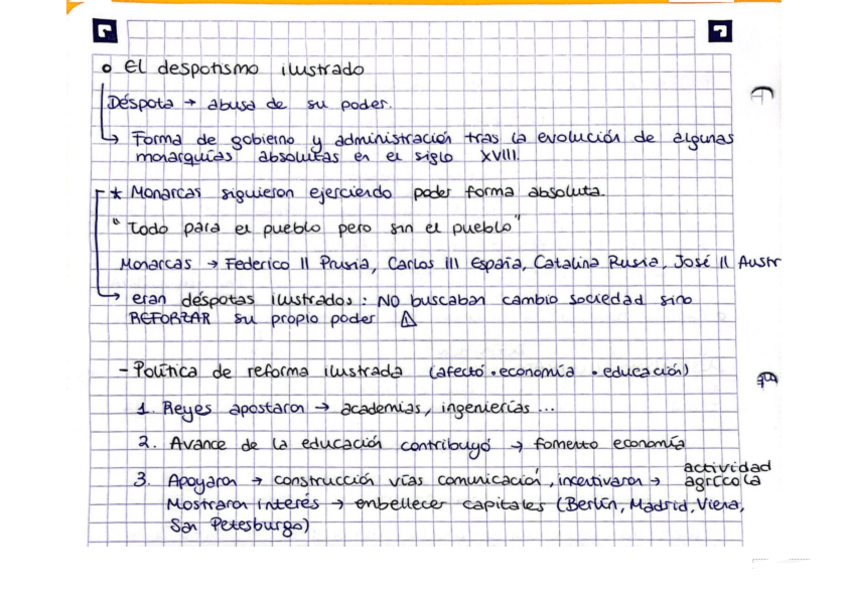 o El despotismo ilustrado
Déspota → abusa de su poder.
↳ Forma de gobierno y administración tras la evolución de algunas
monarquías absolutas en el siglo XVIII.
* Monarcas siguieron ejerciendo poder forma absoluta.
"Todo para el pueblo pero sin el pueblo"
Monarcas → Federico II Prusia, Carlos III España, Catalina Rusia, José II Austr
→ eran déspotas ilustrados: NO buscaban cambio sociedad sino
REFORZAR su propio poder ⚠
- Política de reforma ilustrada (afectó • economía • educación)
1. Reyes apostaron → academias, ingenierías ...
2. Avance de la educación contribuyó → fomento economía
3. Apoyaron → construcción vías comunicación, incentivaron → actividad agrícola
Mostraron interés → embellecer capitales (Berlín, Madrid, Viena,
San Petesburgo)